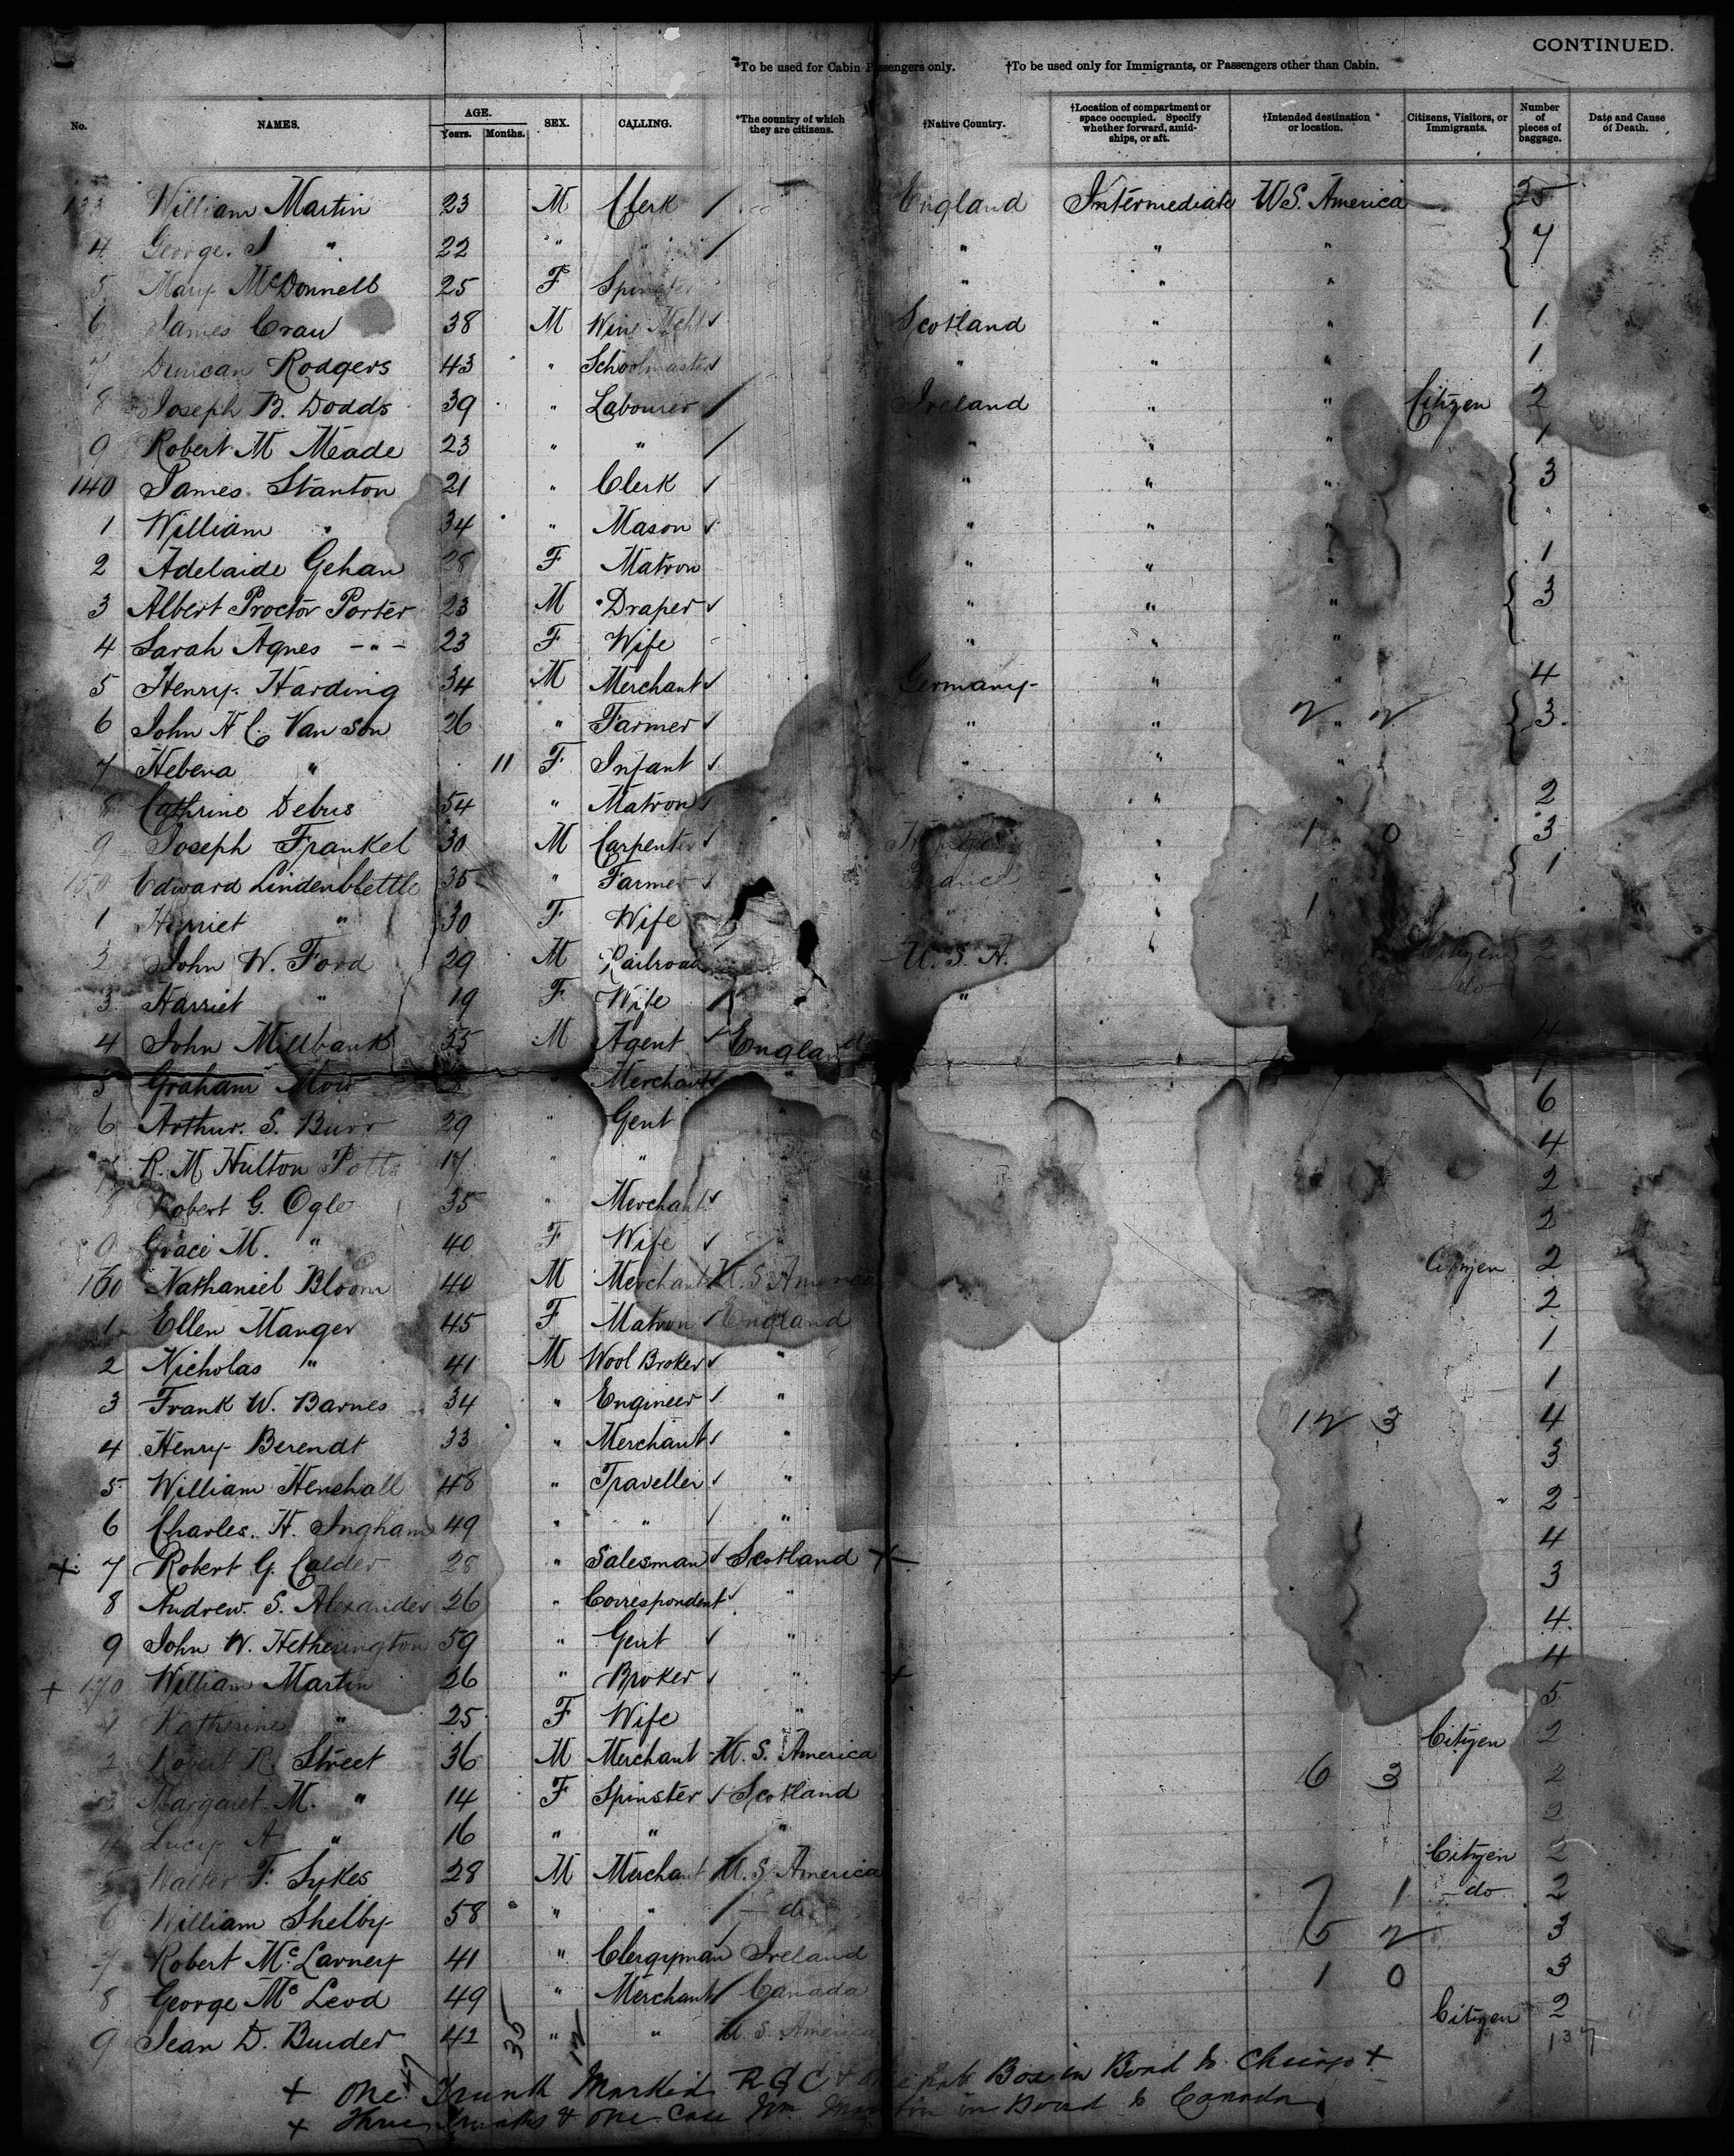 CONTINUED.
*To be used for Cabin Passengers only. †To be used only for Immigrants, or Passengers other than Cabin.
No. NAMES. AGE. Years. Months. SEX. CALLING. *The country of which they are citizens. †Native Country. †Location of compartment or space occupied. Specify whether forward, amid-ships, or aft. †Intended destination or location. Citizens, Visitors, or Immigrants. Number of pieces of baggage. Date and Cause of Death.
133 William Martin 23 M Clerk England Intermediate U.S. America
4 George. S " 22 " " " " " 7
5 Mary McDonnell 25 F Spinster " " "
6 James Craw 38 M Wine Mcht Scotland " " 1
7 Duncan Rodgers 43 " Schoolmaster " " " 1
8 Joseph B. Dodds 39 " Labourer Ireland " " Citizen 2
9 Robert M Meade 23 " " " " " 1
140 James Stanton 21 " Clerk " " " 3
1 William " 34 " Mason " " " "
2 Adelaide Gehan 28 F Matron " " " 1
3 Albert Proctor Porter 23 M Draper " " " 3
4 Sarah Agnes - " - 23 F Wife " " "
5 Henry Harding 34 M Merchant Germany " " 4
6 John H C. Van Son 26 " Farmer " " 2 " 2 3.
7 Hebena " 11 F Infant " " "
8 Cathrine Debus 54 " Matron " " " 2
9 Joseph Frankel 30 M Carpenter " 1 0 3
150 Edward Lindenblettle 35 " Farmer France " " 1
1 Harriet " 30 F Wife " " 1
2 John W. Ford 29 M Railroad U.S.A. " Citizen 2
3 Harriet " 19 F Wife " do
4 John Millbank 35 M Agent England 4
5 Graham Mow " Merchant " 1
6 Arthur. S. Burr 29 " Gent 6
7 R. M Hulton Potts 17 " " 4
8 Robert G. Ogle 35 " Merchant " 2
9 Grace M. " 40 F Wife " 2
160 Nathaniel Bloom 40 M Merchant U.S. America Citizen 2
1 Ellen Manger 45 F Matron England 2
2 Nicholas " 41 M Wool Broker " 1
3 Frank W. Barnes 34 " Engineer " 1
4 Henry Berendt 33 " Merchant " 12 3 4
5 William Henshall 48 " Traveller " 3
6 Charles. H. Ingham 49 " " " 2
+ 7 Robert G. Calder 28 " Salesman Scotland + 4
8 Andrew. S. Alexander 26 " Correspondent " 3
9 John W. Hetherington 59 " Gent " 4
+ 170 William Martin 26 " Broker " + 4
1 Katherine " 25 F Wife " 5
2 Robert R. Street 36 M Merchant U. S. America Citizen 2
3 Margaret M. " 14 F Spinster Scotland 6 3 2
4 Lucy A " 16 " " " 2
5 Walter F. Sykes 28 M Merchant U.S. America Citizen 2
6 William Shelby 58 " " - do 7 1 - do - 2
7 Robert McLarney 41 " Clergyman Ireland 5 2 3
8 George McLeod 49 " Merchant Canada 1 0 3
9 Jean D. Buider 42 " " U.S. America Citizen 2
137
35 12
+ One Trunk Marked R G C + Box in Bond to Chicago +
+ Three Trunks & one Case Wm Martin in Bond to Canada